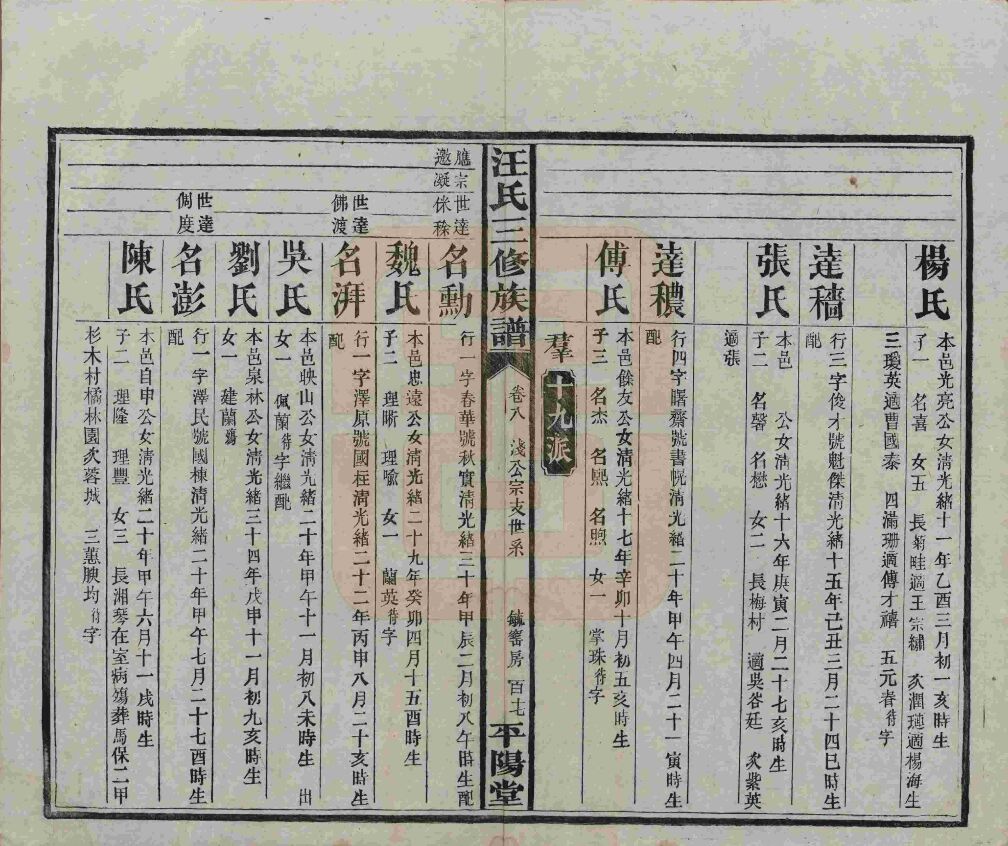 楊氏
本邑光亮公女清光緒十一年乙酉三月初一亥時生
子一 名喜 女五 長菊畦適王宗繡 次潤璉適楊海生
三璦英適曹國泰 四滿珊適傅才禧 五元春待字
達穡
行三字俊才號魁傑清光緒十五年己丑三月二十四巳時生
配
張氏
本邑 公女清光緒十六年庚寅二月二十七亥時生
子二 名馨 名懋 女二 長梅村 適吳峇廷 次紫英
適張
達穠
行四字曙齋號書幌清光緒二十年甲午四月二十一寅時生
配
傅氏
本邑餘友公女清光緒十七年辛卯十月初五亥時生
子三 名杰 名熙 名煦 女一 掌珠待字
羣
十九派
汪氏三修族譜
卷八 淺公宗支世系 毓畧房 百七 平陽堂
應宗世達
邀凝侏稼
名勳
行一字春華號秋實清光緒三十年甲辰二月初八午時生配
魏氏
本邑忠遠公女清光緒二十九年癸卯四月十五酉時生
子二 理晣 理喩 女一 蘭英待字
世達
佛渡
名湃
行一字澤原號國柱清光緒二十二年丙申八月二十亥時生
配
吳氏
本邑映山公女清光緒二十年甲午十一月初八未時生 出
女一 佩蘭待字繼配
劉氏
本邑泉林公女清光緒三十四年戊申十一月初九亥時生
女一 建蘭殤
世達
倜度
名澎
行一字澤民號國棟清光緒二十年甲午七月二十七酉時生
配
陳氏
本邑自申公女清光緒二十年甲午六月十一戌時生
子二 理隆 理豐 女三 長湘琴在室病殤葬馬保二甲
杉木村橘林園次蓉城 三蕙腴均待字